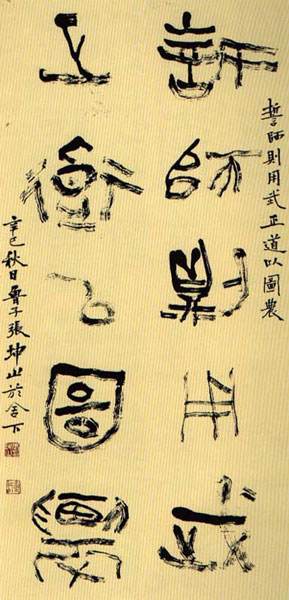 誓師則用武正道以圖農
誓師則用武
正道以圖農
辛巳秋日魯子張坤山於舍下